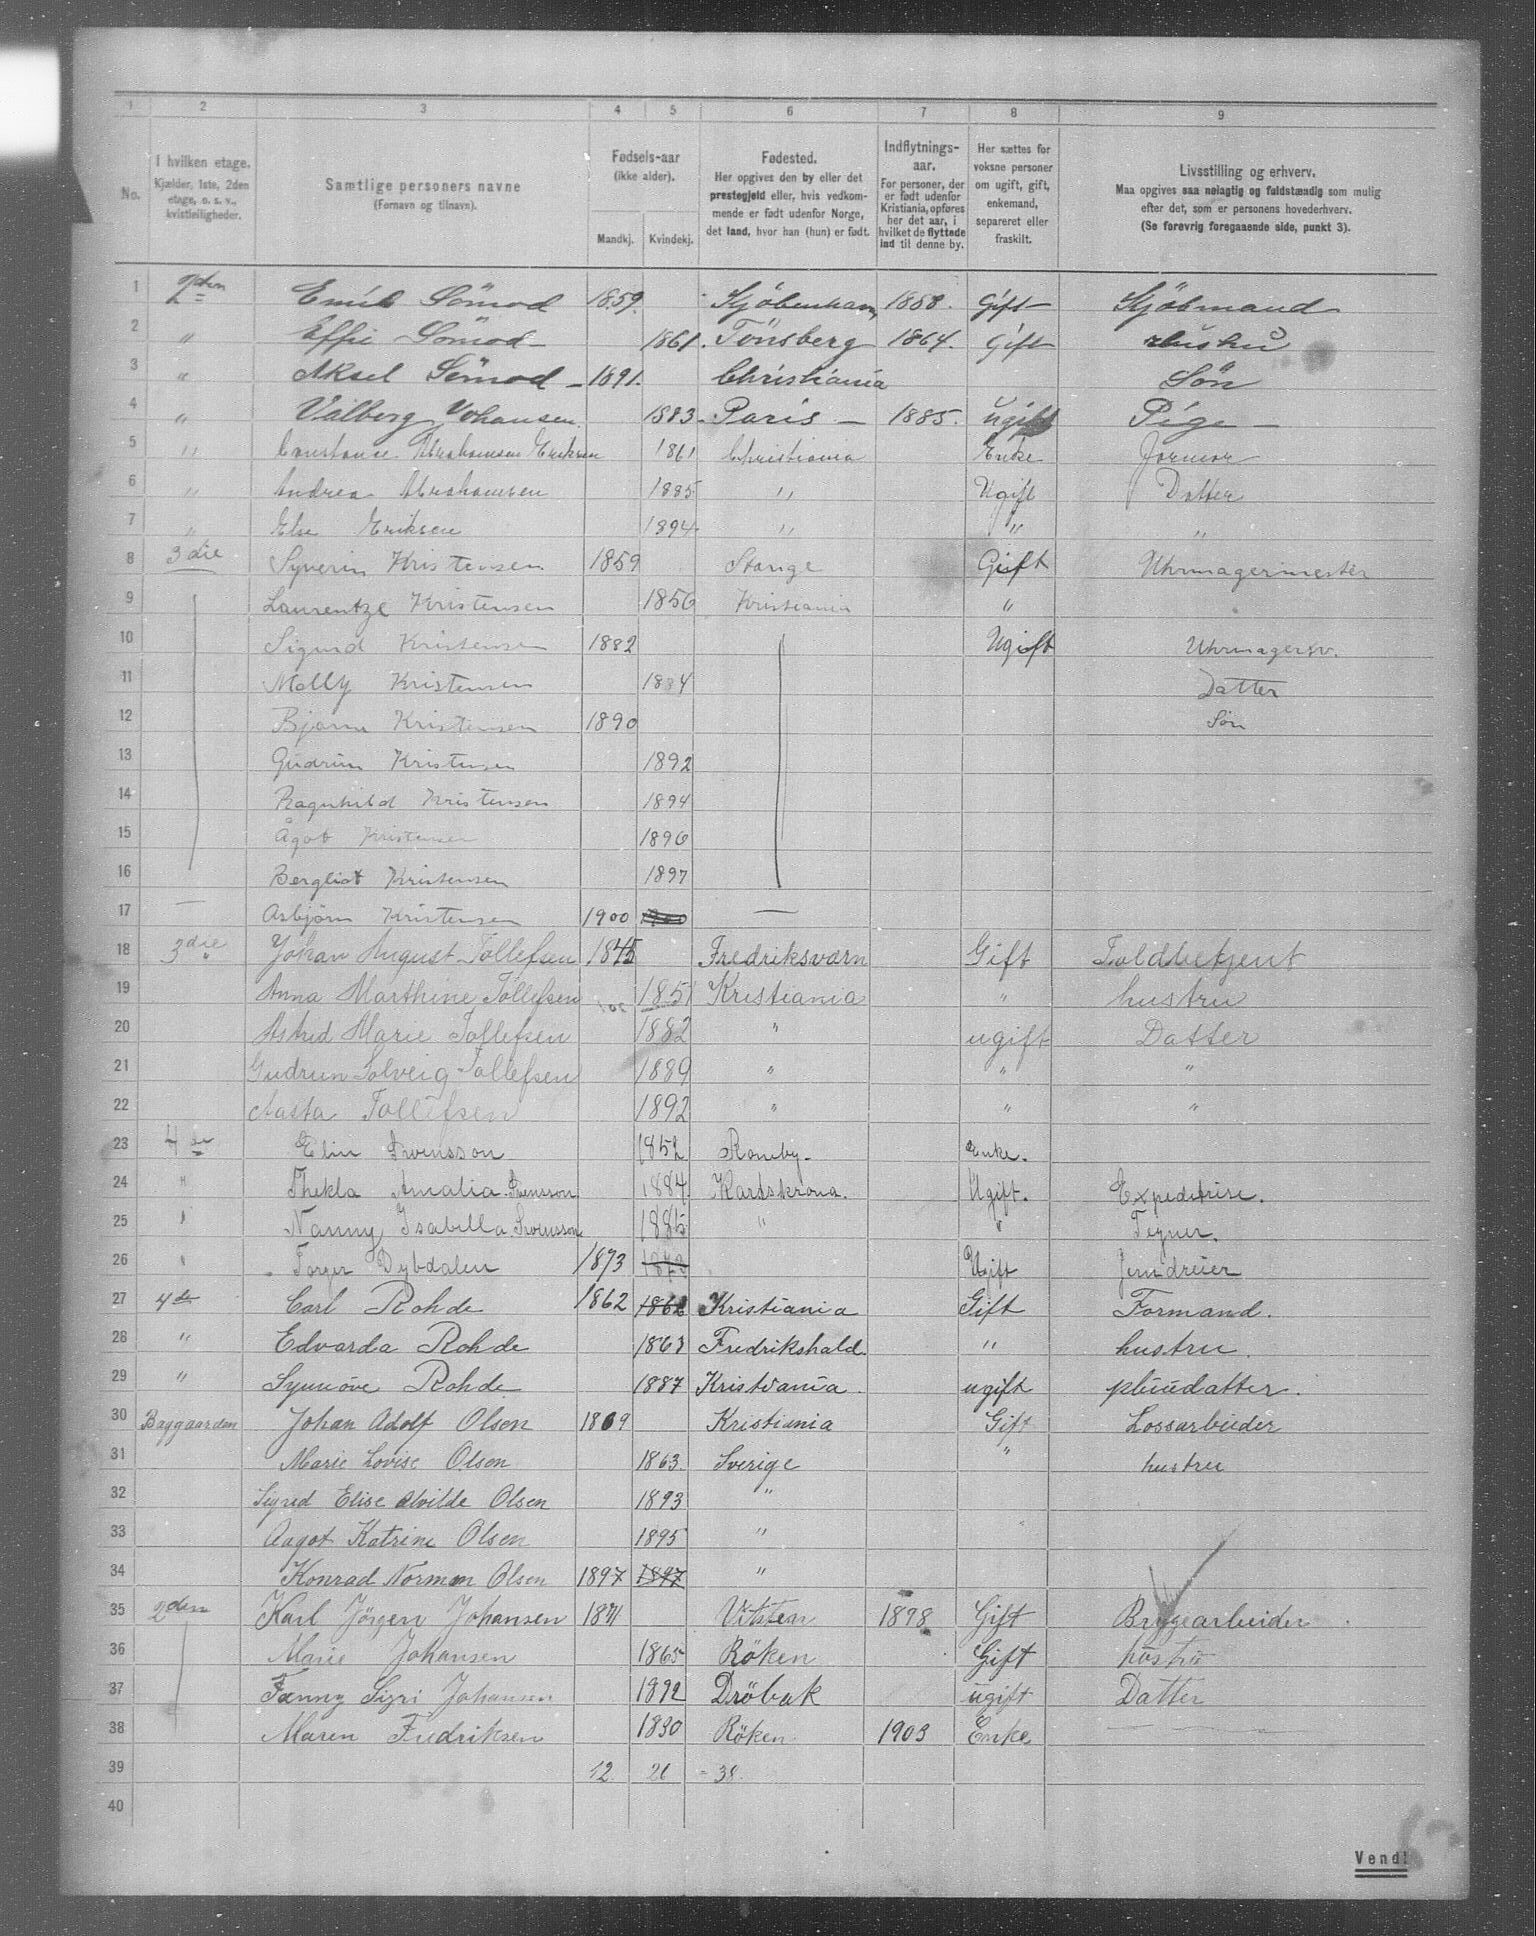 1 2 3 4 5 6 7 8 9
No. I hvilken etage. Kjælder, 1ste, 2den etage, o. s. v., kvistleiligheder. Samtlige personers navne (Fornavn og tilnavn). Fødsels-aar (ikke alder). Mandkj. Kvindekj. Fødested. Her opgives den by eller det prestegjeld eller, hvis vedkommende er født udenfor Norge, det land, hvor han (hun) er født. Indflytnings-aar. For personer, der er født udenfor Kristiania, opføres her det aar, i hvilket de flyttede ind til denne by. Her sættes for voksne personer om ugift, gift, enkemand, separeret eller fraskilt. Livsstilling og erhverv. Maa opgives saa nøiagtig og fuldstændig som mulig efter det, som er personens hovederhverv. (Se forøvrig foregaaende side, punkt 3).
1 2den Emil Sömod 1859. Kjöbenhavn 1868. Gift Kjöbmand
2 " Effie Sömod 1861. Tönsberg 1864. Gift Hustru
3 " Aksel Sömod 1891. Christiania Sön
4 " Valberg Johansen 1883 Paris 1885. ugift Pige
5 " Constance Abrahamsen Eriksen 1861 Christiania Enke Jormor
6 " Andrea Abrahamsen 1885 " Ugift Datter
7 " Else Eriksen 1894 " " "
8 3die Syverin Kristensen 1859 Stange Gift Uhrmagermester
9 Laurentze Kristensen 1856 Kristiania "
10 Sigurd Kristensen 1882 Ugift Uhrmagersv.
11 Molly Kristensen 1884 Datter
12 Bjarne Kristensen 1890 Sön
13 Gudrun Kristensen 1892
14 Ragnhild Kristensen 1894
15 Ågot Kristensen 1896
16 Bergliot Kristensen 1897
17 — Asbjörn Kristensen 1900 1900 —
18 3die Johan August Tollefsen 1845 Fredriksværn Gift Toldbetjent
19 Anna Marthine Tollefsen 1851 Kristiania " hustru
20 Astrid Marie Tollefsen 1882 " ugift Datter
21 Gudrun Solveig Tollefsen 1889 " " "
22 Aasta Tollefsen 1892 " " "
23 4de Elin Svensson 1852 Roneby. Enke.
24 " Thekla Amalia Svensson 1884. Karlskrona. Ugift. Expeditrise.
25 " Nanny Isabella Svensson 1885 " " Tegner.
26 " Torger Dybdalen 1873 1873 Ugift Jerndreier
27 4de Carl Rohde 1862 1862 Kristiania Gift Formand.
28 " Edvarda Rohde 1863 Fredrikshald " hustru.
29 " Synnöve Rohde 1887 Kristiania. ugift pleiedatter.
30 Baggaarden Johan Adolf Olsen 1869 Kristiania Gift Lossarbeider
31 Marie Lovise Olsen 1863 Sverige " hustru
32 Sigrid Elise Alvilde Olsen 1893 "
33 Aagot Katrine Olsen 1895 "
34 Konrad Norman Olsen 1897 1897 "
35 2den Karl Jörgen Johansen 1871 Vitsten 1898 Gift Bryggearbeider
36 Marie Johansen 1865 Röken Gift hustru
37 Fanny Siri Johansen 1892 Dröbak ugift Datter
38 Maren Fredriksen 1830 Röken 1903 Enke —
39 12 26 - 38.
40
Vend!